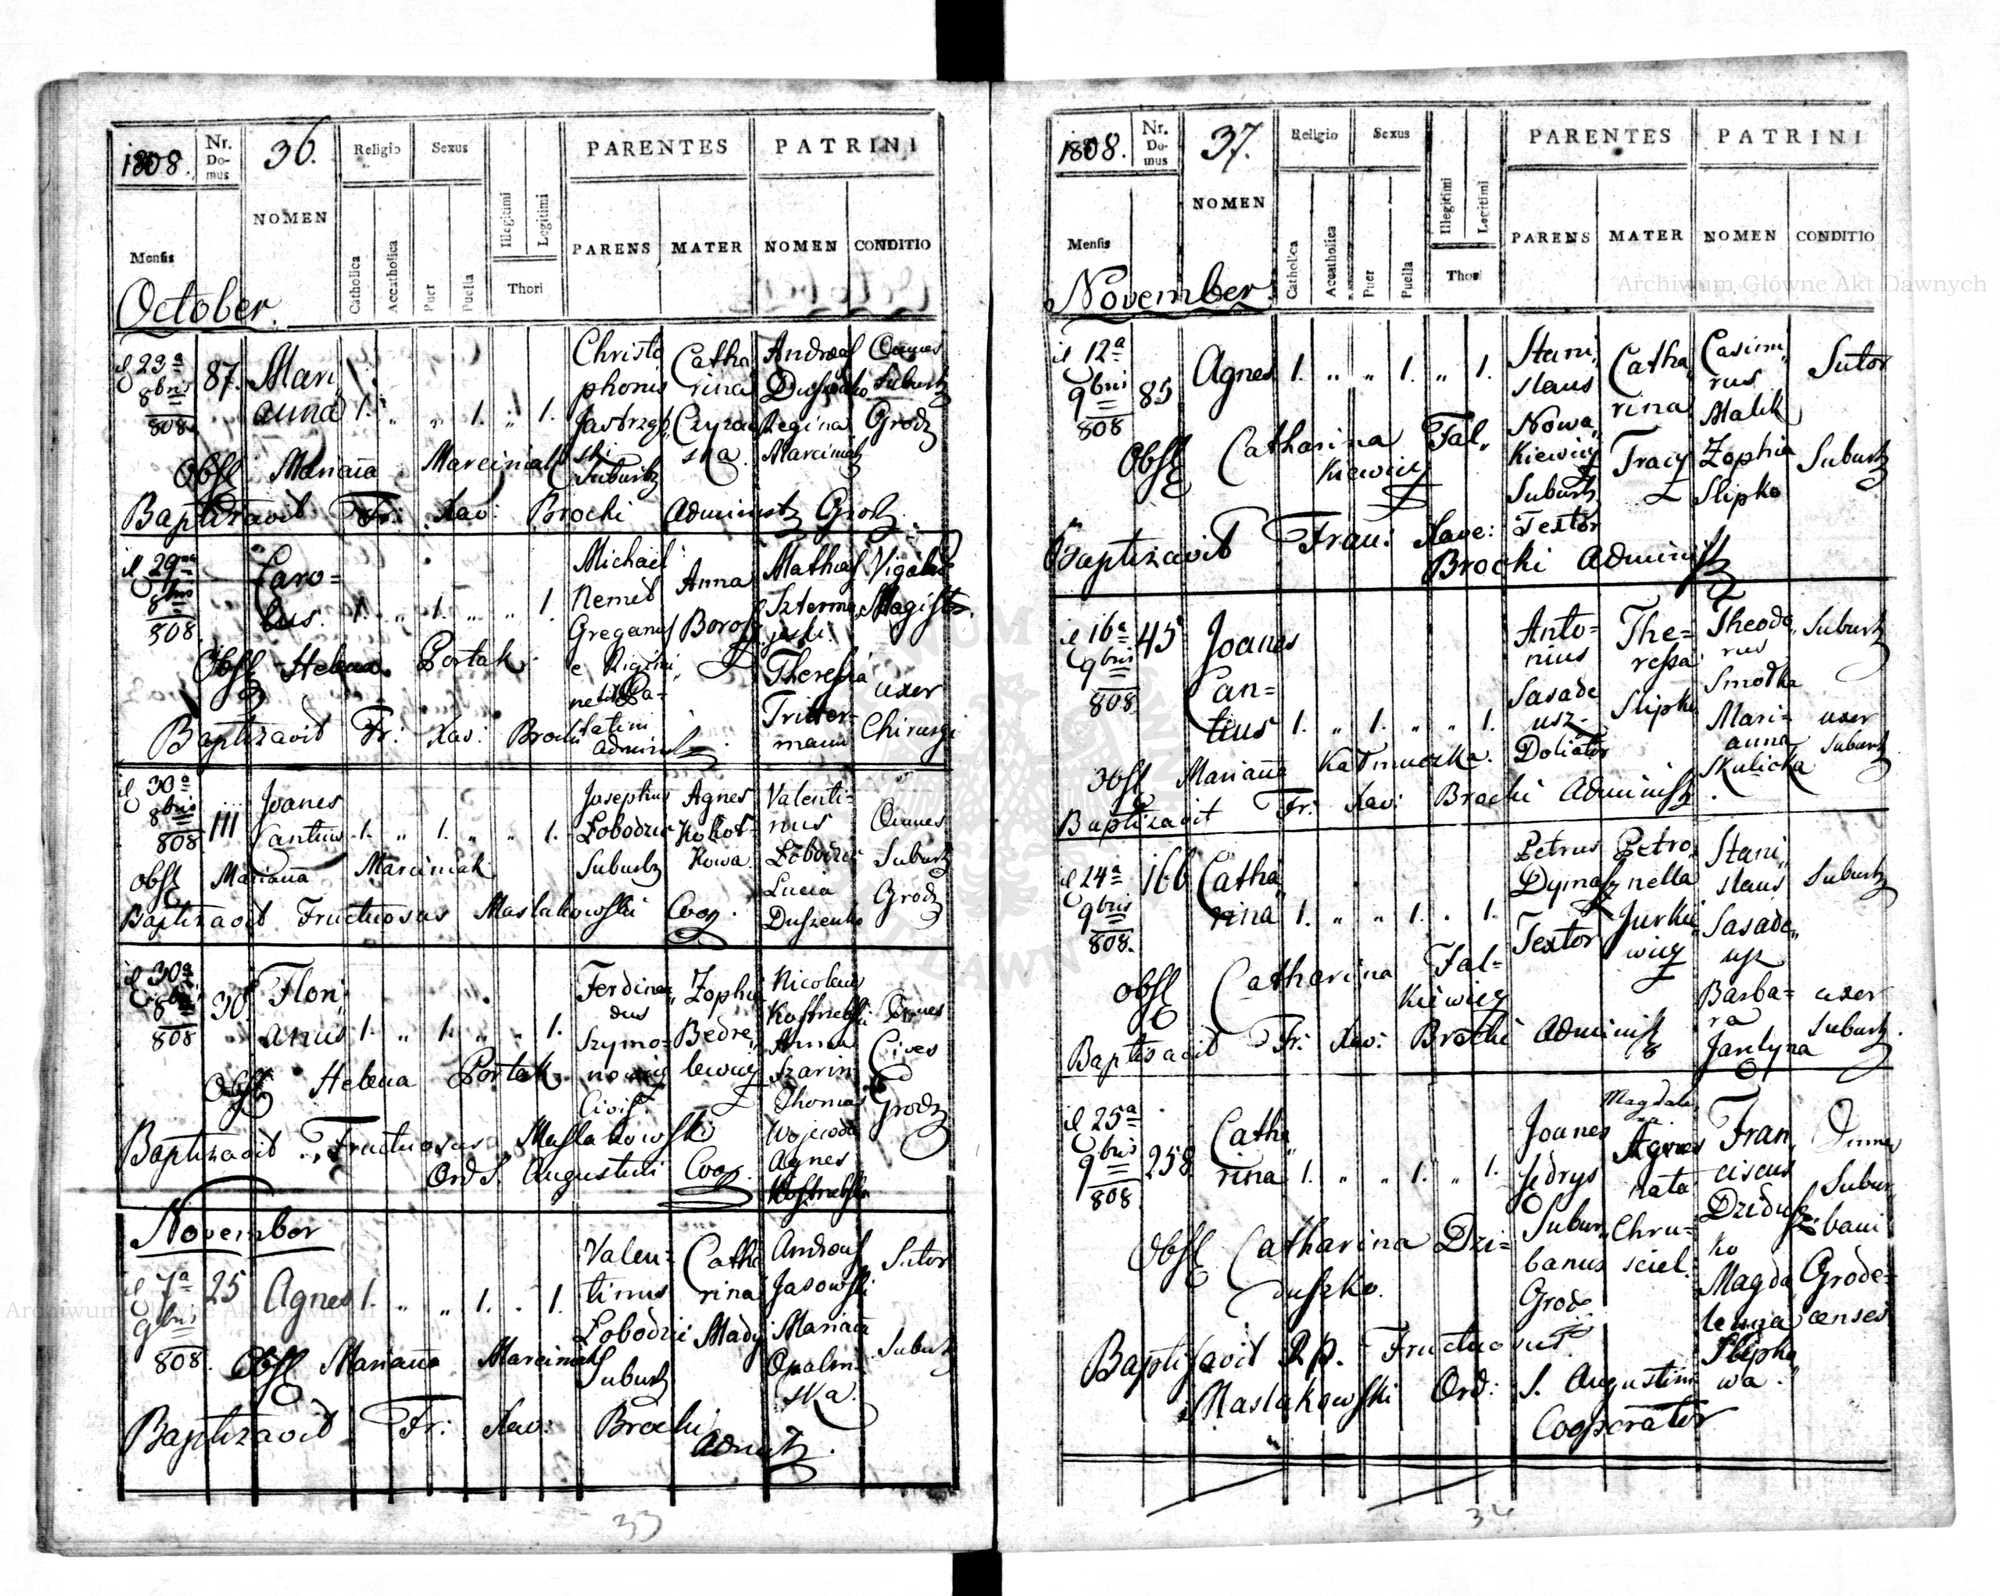 1808.
Nr. Domus
36.
Religio
Sexus
PARENTES
PATRINI
Mensis
NOMEN
Catholica
Accatholica
Puer
Puella
Illegitimi
Legitimi
Thori
PARENS
MATER
NOMEN
CONDITIO
October.
23ª 8bris 808
87.
Marianna
1. " " 1. " 1.
Christophonis Jastrzębski Suburb
Catharina
Andreas
Regina Marciniak
Omnes Suburb Grodz
Obst Mariana Marciniak
Baptizavit Fr: Xav: Brocki Administ Grod.
29na 8bris 808.
Carolus.
1. " 1. " " 1.
Michael Nemeth Greganus
Anna
Mathias
Theressia Trittermann
Magistr.
uxer Chirurgi
Obst Helena Portak
Baptizavit Fr: Xav: Brocki administ
30ª 8bris 808
111
Joanes Cantius
1. " 1. " " 1.
Josephus Łobodzic Suburb
Agnes Kokotkowa
Valentinus Łobodzic
Lucia Duszenko
Omnes Suburb Grodz
Obst Mariana Marciniak
Baptizavit Fructuosus Maslakowski Coop.
30ª 8bris 808
30.
Florianus
1. " 1. " " 1.
Ferdinandus Szymonowicz Civis
Zophia
Nicolaus
Anna
Thomas
Agnes
Omnes Cives Grodz
Obst Helena Portak
Baptizavit Fructuosus Maslakowski
Ord S. Augustini Coop.
November
7ª 9bris 808.
25
Agnes
1. " " 1. " 1.
Valentinus Łobodzic Suburb
Catharina Mady
Andreas Jasowski
Mariana Opalinska.
Sutor
Suburb
Obst Mariana Marciniak
Baptizavit Fr: Xav: Brocki
33
1808.
Nr. Domus
37.
Religio
Sexus
PARENTES
PATRINI
Mensis
NOMEN
Catholica
Accatholica
Puer
Puella
Illegitimi
Legitimi
Thori
PARENS
MATER
NOMEN
CONDITIO
November.
12ª 9bris 808
85
Agnes
1. " " 1. " 1.
Stanislaus Nowakiewicz Suburb Textor
Catharina Tracz
Casimirus Malik
Zophia Slipko
Sutor
Suburb
Obst Catharina Falkiewicz
Baptizavit Fran: Xave: Brocki Administ
16ª 9bris 808
45
Joanes Cantius
1. " 1. " " 1.
Antonius Sasadeusz Doliator
Theressa Slipko
Theodorus Smotka
Marianna Skulicka
Suburb
uxer Suburb
Obst Mariana
Baptizavit Fr: Xav: Brocki Administ
24ª 9bris 808.
166
Catharina
1. " " 1. " 1.
Petrus Dymasz Textor
Petronella Jurkiewicz
Stanislaus Sasadeusz
Barbara
Suburb
uxer Suburb.
Obst Catharina Falkiewicz
Baptizavit Fr: Xav: Brocki Administ
25ª 9bris 808
258
Catharina
1. " " 1. " 1.
Joanes Jedrys Suburbanus Grod
Magdalena
Agnes nata Chrusciel.
Franciscus Dziduszko
Magdalena Slipkowa.
Omnes Suburbani Grodecenses
Obst Catharina Dziduszko.
Baptizavit R p. Fructuosus
Maslakowski Ord: S. Augustini
Cooperator
34
Archiwum Główne Akt Dawnych
Archiwum Główne Akt Dawnych